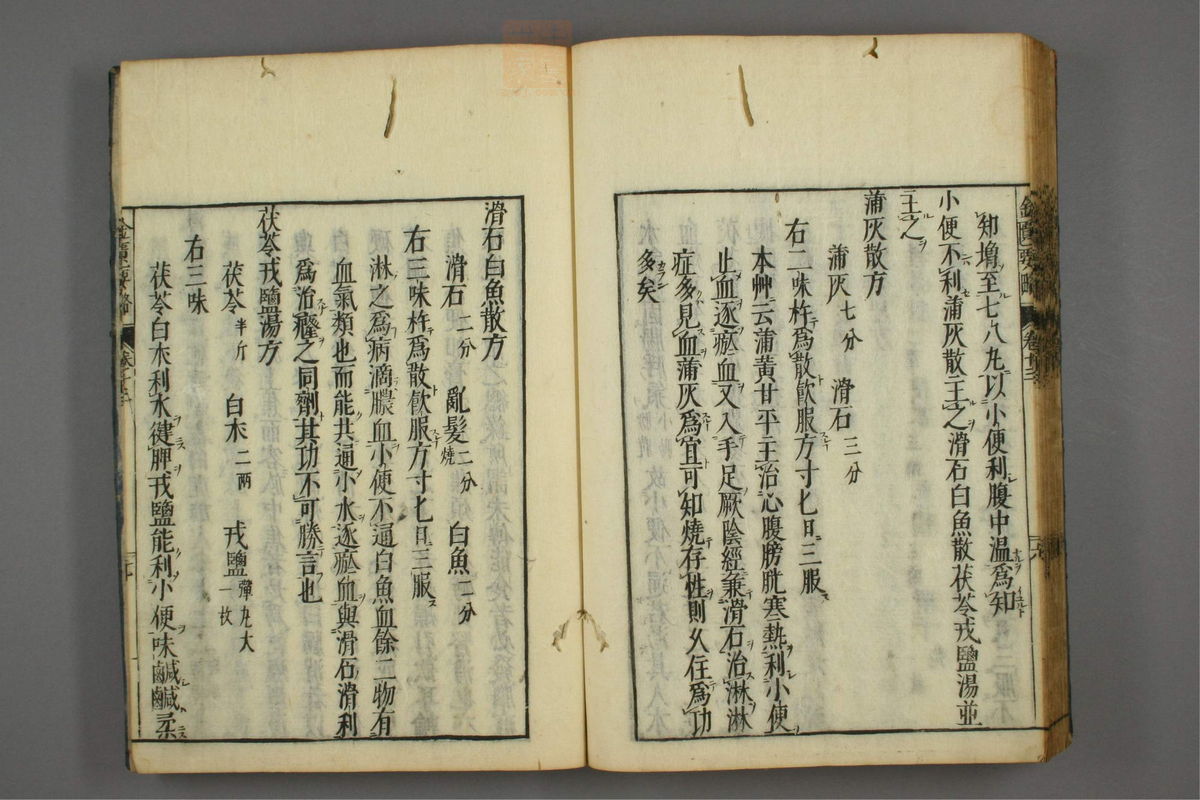 知增至七八丸以小便利腹中溫爲知
小便不利蒲灰散主之滑石白魚散茯苓戎鹽湯並
主之
蒲灰散方
蒲灰七分 滑石三分
右二味杵爲散飮服方寸匕日三服
本艸云蒲黃甘平主治心腹膀胱寒熱利小便
止血逐瘀血又入手足厥陰經兼滑石治淋淋
症多見血蒲灰爲宜可知燒存性則久住爲功
多矣
滑石白魚散方
滑石二分 亂髮二分燒 白魚二分
右三味杵爲散飮服方寸匕日三服
淋之爲病滴膿血小便不通白魚血餘二物有
血氣類也而能共通小水逐瘀血與滑石滑利
爲治癃之同劑其功不可勝言也
茯苓戎鹽湯方
茯苓半斤 白朮二兩 戎鹽彈丸大一枚
右三味
茯苓白朮利水健脾戎鹽能利小便味鹹鹹柔